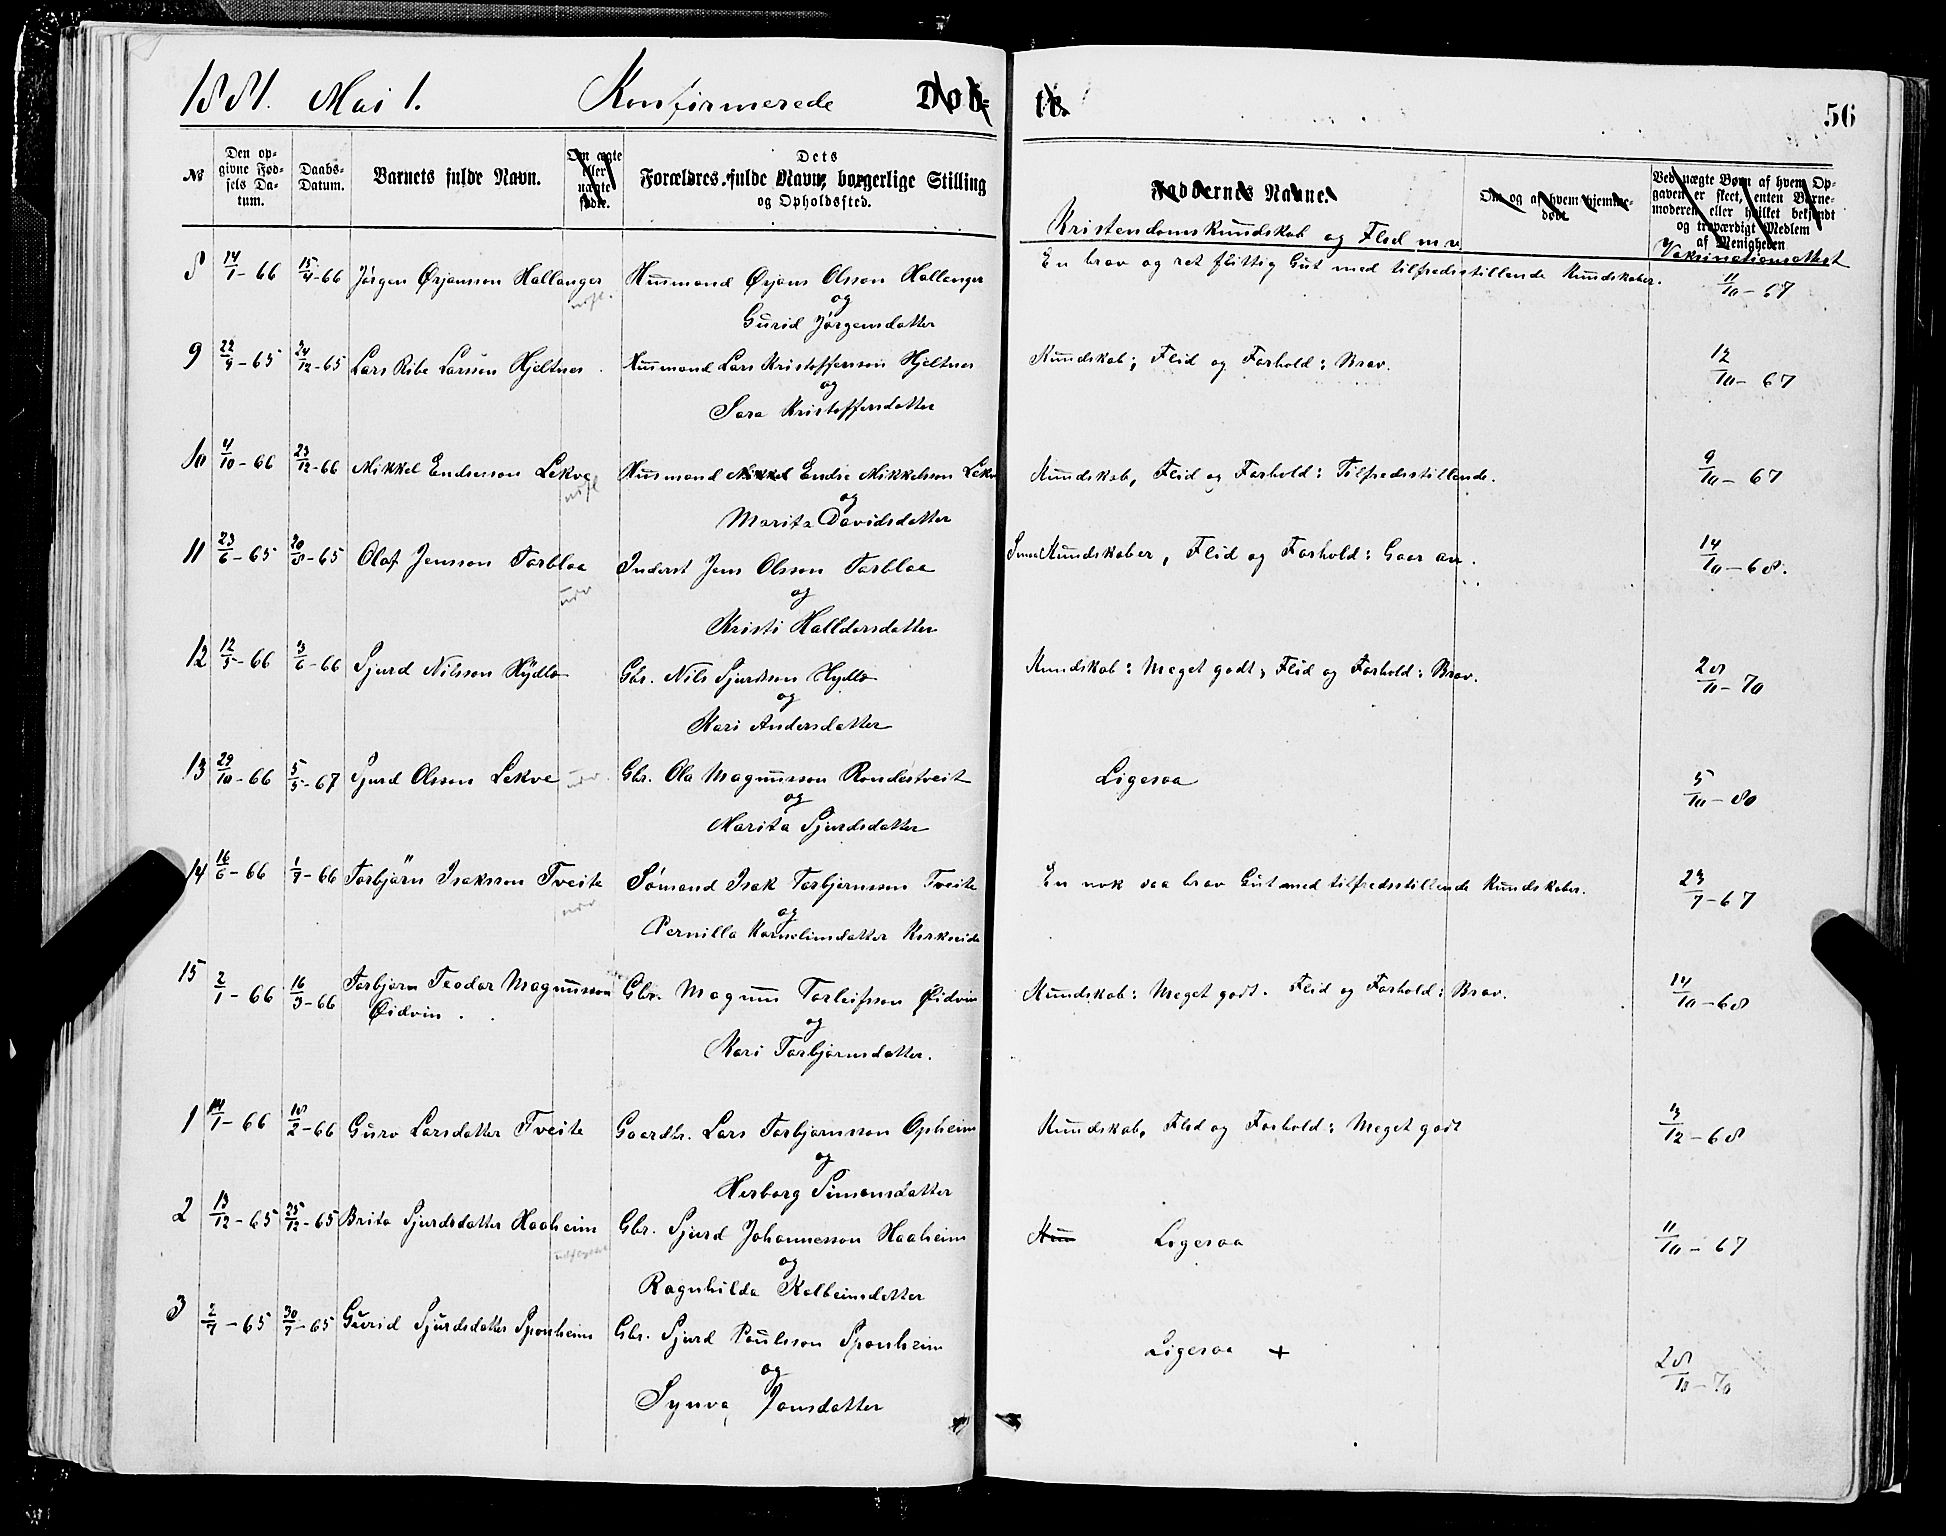 1881. Mai 1. Konfirmerede Døb- te. 56
№ Den opgivne Fødsels Datum. Daabs-Datum. Barnets fulde Navn. Om ægte eller uægte født. Dets Forældres fulde Navn, borgerlige Stilling og Opholdssted. Faddernes Navne. Om og af hvem hjemmedøbt. Ved uægte Børn af hvem Opgaven er skeet, enten Barnemoderen eller hvilket bekjendt og troværdigt Medlem af Menigheden
Kristendomskundskab og Flid m v Vaksinationsattest
8 14/1-66 15/4-66 Jørgen Ørjansson Hallanger Husmand Ørjans Olsson Hallanger En brav og ret flittig Gut med tilfredsstillende Kundskaber. 11/10-67
og
Gurid Jørgensdatter
9 22/9-65 24/12-65 Lars Ribe Larsson Hjeltnes Husmand Lars Kristoffersson Hjeltnes Kundskab, Flid og Forhold: Brav. 12/10-67
og
Sara Kristoffersdatter
10 4/10-66 23/12-66 Mikkel Endresson Lekve Husmand Mikkel Endre Mikkelsson Lekve Kundskab, Flid og Forhold: Tilfredsstillende. 9/10-67
og
Marita Davidsdatter
11 23/6-65 20/8-65 Olaf Jensson Torblaa Inderst Jens Olsson Torblaa Kundskaber, Flid og Forhold: Gaar an. 14/10-68.
og
Kristi Halldorsdatter
12 12/5-66 3/6-66 Sjurd Nilsson Hydlo Gbr. Nils Sjurdsson Hydlo Kundskab: Meget godt, Flid og Forhold: Brav. 28/11-70
og
Kari Andersdatter
13 29/10-66 5/5-67 Sjurd Olsson Lekve Gbr. Ola Magnusson Rondestveit Ligesaa 5/10-80
og
Marita Sjurdsdatter
14 16/6-66 1/7-66 Torbjørn Isaksson Tveite Sømand Isak Torbjørnsson Tveite En nok saa brav Gut med tilfredsstillende Kundskaber. 23/7-67
og
Pernilla Korneliusdatter
15 2/1-66 16/3-66 Torbjørn Teodor Magnusson Gbr. Magnus Torleifsson Øidvin Kundskab: Meget godt. Flid og Forhold: Brav. 14/10-68
Øidvin.
og
Kari Torbjørnsdatter.
1 14/1-66 18/2-66 Guro Larsdatter Tveite Gaardbr. Lars Torbjørnsson Opheim Kundskab, Flid og Forhold: Meget godt 13/12-68
og
Herborg Simonsdatter
2 13/12-65 25/12-65 Brita Sjurdsdatter Haaheim Gbr. Sjurd Johannesson Haaheim Kun Ligesaa 11/10-67
og
Ragnhilda Kolbeinsdatter
3 2/7-65 30/7-65 Gurid Sjurdsdatter Sponheim Gbr. Sjurd Poulsson Sponheim Ligesaa + 28/11-70
og
Synva Jonsdatter